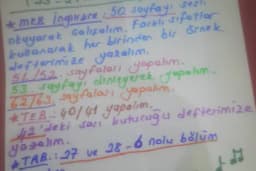 * MEB İngilizce: 50 sayfayı sesli
okuyarak çalışalım. Farklı sıfatlar
kullanarak her birinden bir örnek
defterimize yazalım.
51/52. sayfaları yapalım.
53 sayfayı dinleyerek yapalım.
62/63 sayfaları yapalım.
* TEB: 40/41 yapalım.
42'deki sarı kutucuğu defterimize
yazalım.
* TAB: 27 ve 28-6 nolu bölüm